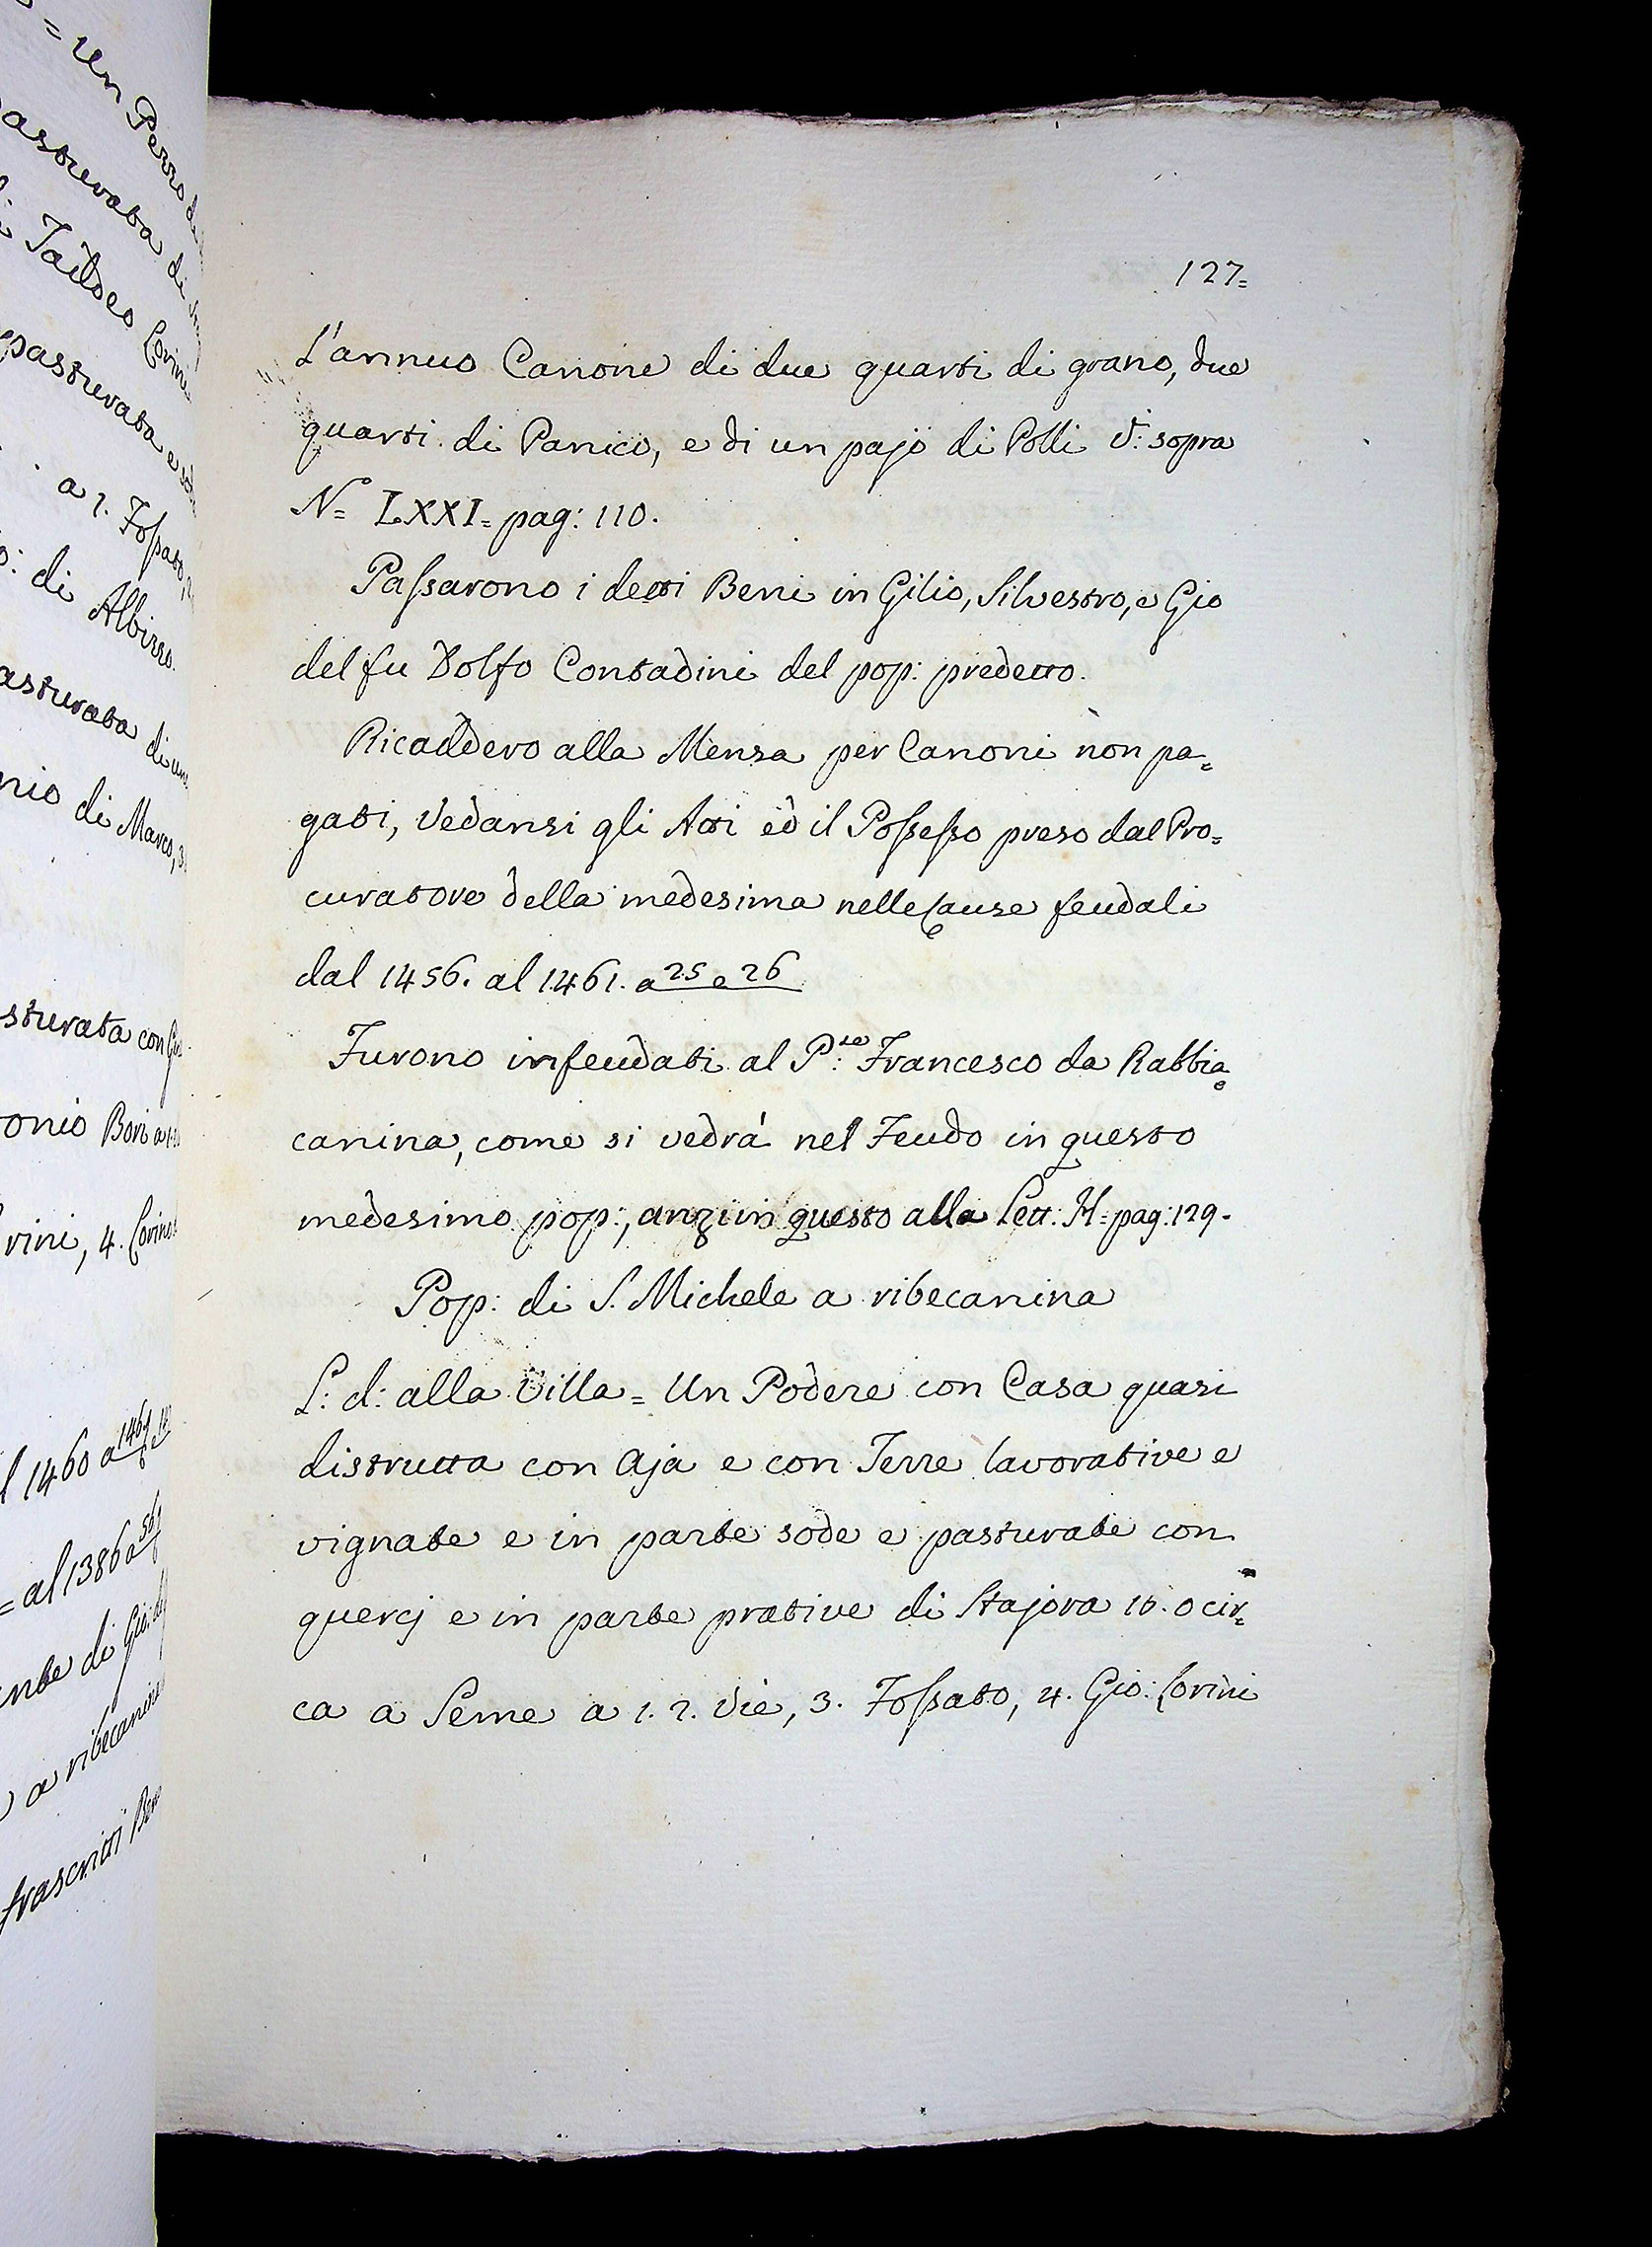 = un Pezzo di
pasturata di
di Taddeo Corini
pasturata e
a 1. Foſsato,
di Albizzo.
pasturata di un
nio di Marco, 3.
sturata con
onio Boni a 1.
vini, 4. Corino
l 1460 a 146
= al 1386 a 56
nte di Gio:
a ribecanina
frascritti Beni
127=
L'annuo Canone di due quarti di grano, due
quarti di Panico, e di un pajo di Polli V: sopra
N= LXXI= pag: 110.
Paſsarono i detti Beni in Gilio, Silvestro, e Gio
del fu Dolfo Contadini del pop: predetto.
Ricaddero alla Mensa per Canoni non pa=
gati, Vedansi gli Atti ed il Poſseſso preso dal Pro=
curatore della medesima nelle Cause feudali
dal 1456. al 1461. a 25 e 26
Furono infeudati al P:te Francesco da Rabbia
canina, come si vedrà nel Feudo in questo
medesimo pop:, anzi in questo alla Lett: H= pag: 129.
Pop: di S. Michele a ribecanina
L: d: alla Villa = Un Podere con Casa quasi
distrutta con Aja e con Terre lavorative e
vignate e in parte sode e pasturate con
quercj e in parte prative di Stajora 16. o cir=
ca a Seme a 1. 2. Vie, 3. Foſsato, 4. Gio: Corini